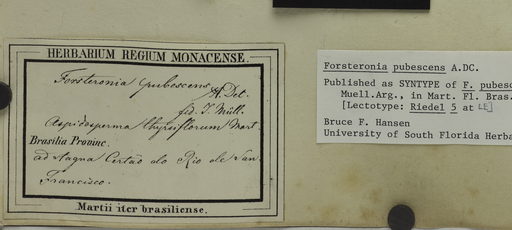 HERBARIUM REGIUM MONACENSE.
Forsteronia pubescens
A. Det.
fid. J. Müll.
Aspidosperma thyrsiflorum Mart.
Brasilia Provinc.
ad stagna Certão do Rio de San
Francisco.
Martii iter brasiliense.
Forsteronia pubescens A.DC.
Published as SYNTYPE of F. pubesc
Muell.Arg., in Mart. Fl. Bras.
[Lectotype: Riedel 5 at LE]
Bruce F. Hansen
University of South Florida Herba